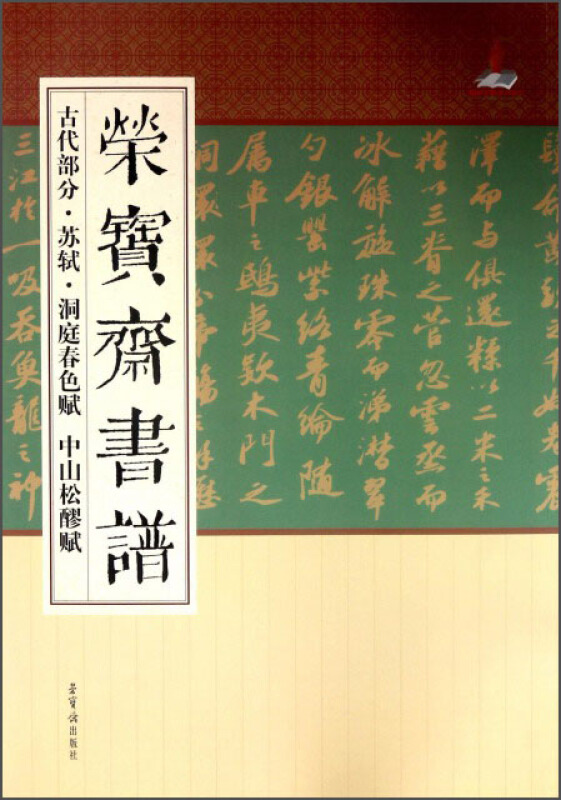 榮寶齋書譜
古代部分·苏轼·洞庭春色赋 中山松醪赋
澤而与俱還糅以二米之禾
藉以三脊之菅忽雲烝而
冰解旋珠零而涕潸翠
勺銀罌紫絡青綸随
属車之鴟夷欵木門之
三江於一吸吞魚龍之神
荣宝斋出版社